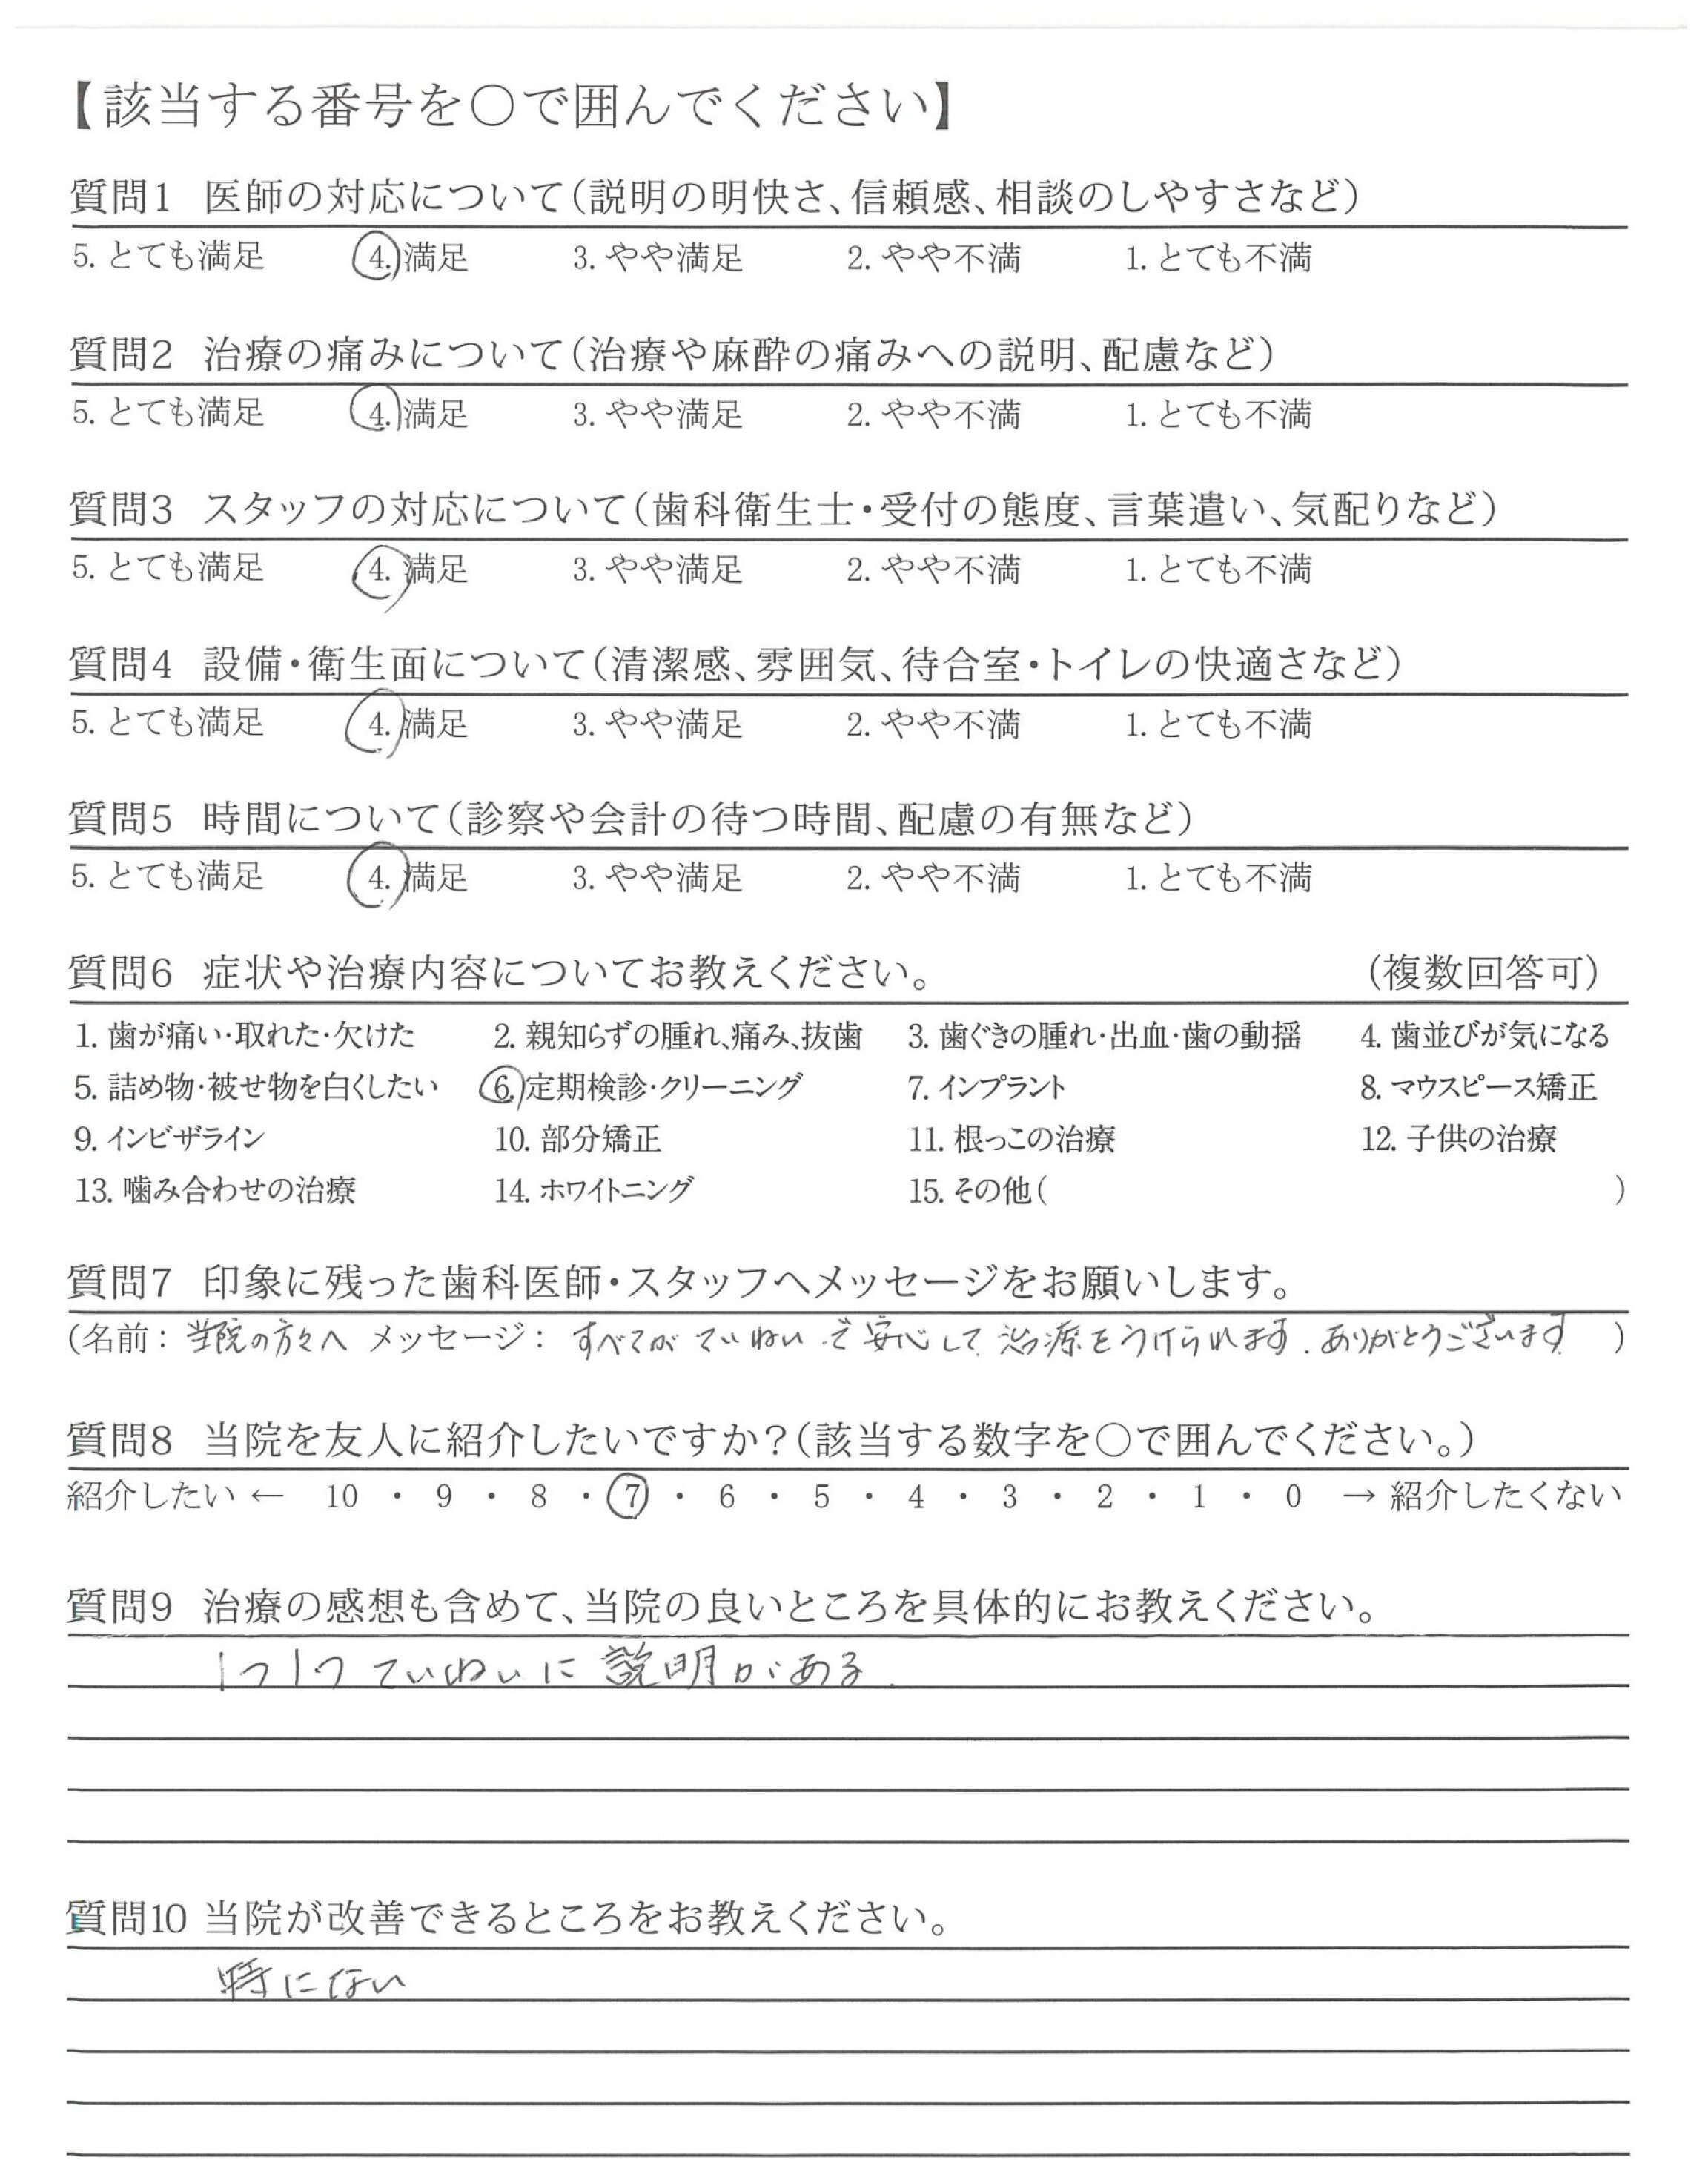 【該当する番号を○で囲んでください】
質問1 医師の対応について(説明の明快さ、信頼感、相談のしやすさなど)
5. とても満足 4. 満足 3. やや満足 2. やや不満 1. とても不満
質問2 治療の痛みについて(治療や麻酔の痛みへの説明、配慮など)
5. とても満足 4. 満足 3. やや満足 2. やや不満 1. とても不満
質問3 スタッフの対応について(歯科衛生士・受付の態度、言葉遣い、気配りなど)
5. とても満足 4. 満足 3. やや満足 2. やや不満 1. とても不満
質問4 設備・衛生面について(清潔感、雰囲気、待合室・トイレの快適さなど)
5. とても満足 4. 満足 3. やや満足 2. やや不満 1. とても不満
質問5 時間について(診察や会計の待つ時間、配慮の有無など)
5. とても満足 4. 満足 3. やや満足 2. やや不満 1. とても不満
質問6 症状や治療内容についてお教えください。 (複数回答可)
1. 歯が痛い・取れた・欠けた 2. 親知らずの腫れ、痛み、抜歯 3. 歯ぐきの腫れ・出血・歯の動揺 4. 歯並びが気になる
5. 詰め物・被せ物を白くしたい 6. 定期検診・クリーニング 7. インプラント 8. マウスピース矯正
9. インビザライン 10. 部分矯正 11. 根っこの治療 12. 子供の治療
13. 噛み合わせの治療 14. ホワイトニング 15. その他( )
質問7 印象に残った歯科医師・スタッフへメッセージをお願いします。
(名前: 当院の方々へ メッセージ: すべてがていねいで安心して治療をうけられます.ありがとうございます )
質問8 当院を友人に紹介したいですか?(該当する数字を○で囲んでください。)
紹介したい ← 10 ・ 9 ・ 8 ・ 7 ・ 6 ・ 5 ・ 4 ・ 3 ・ 2 ・ 1 ・ 0 → 紹介したくない
質問9 治療の感想も含めて、当院の良いところを具体的にお教えください。
1つ1つていねいに説明がある.
質問10 当院が改善できるところをお教えください。
特にない